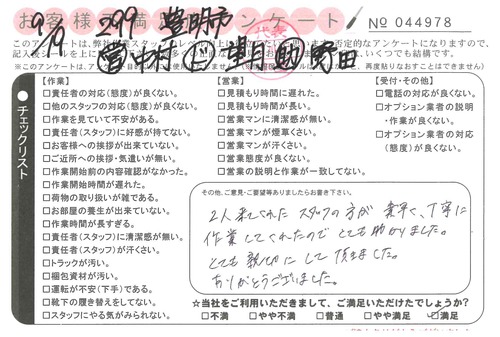 お客様満足アンケート
№ 044978
9/19 299 豊明市
営 中村 土 望月 國 野田
チェックリスト
【作業】
□責任者の対応(態度)が良くない。
□他のスタッフの対応(態度)が良くない。
□作業を見ていて不安がある。
□責任者(スタッフ)に好感が持てない。
□お客様への挨拶が出来ていない。
□ご近所への挨拶・気遣いが無い。
□作業開始前の内容確認がなかった。
□作業開始時間が遅れた。
□荷物の取り扱いが雑である。
□お部屋の養生が出来ていない。
□作業時間が長すぎる。
□責任者(スタッフ)に清潔感が無い。
□責任者(スタッフ)が汗くさい。
□トラックが汚い。
□梱包資材が汚い。
□運転が不安(下手)である。
□靴下の履き替えをしてない。
□スタッフにやる気がみられない。
【営業】
□見積もり時間に遅れた。
□見積もり時間が長い。
□営業マンに清潔感が無い。
□営業マンが煙草くさい。
□営業マンが汗くさい。
□営業態度が良くない。
□営業の説明と作業が一致してない。
【受付・その他】
□電話の対応が良くない。
□オプション業者の説明
・作業が良くない。
□オプション業者の対応
(態度)が良くない。
その他、ご意見・ご要望等ありましたらお書き下さい。
2人来てくれた スタッフの方が 素早く、丁寧に
作業してくれたので とても助かりました。
とても親切にして頂きました。
ありがとうございました。
☆当社をご利用いただきまして、ご満足いただけたでしょうか?
□不満 □やや不満 □普通 □やや満足 ☑満足